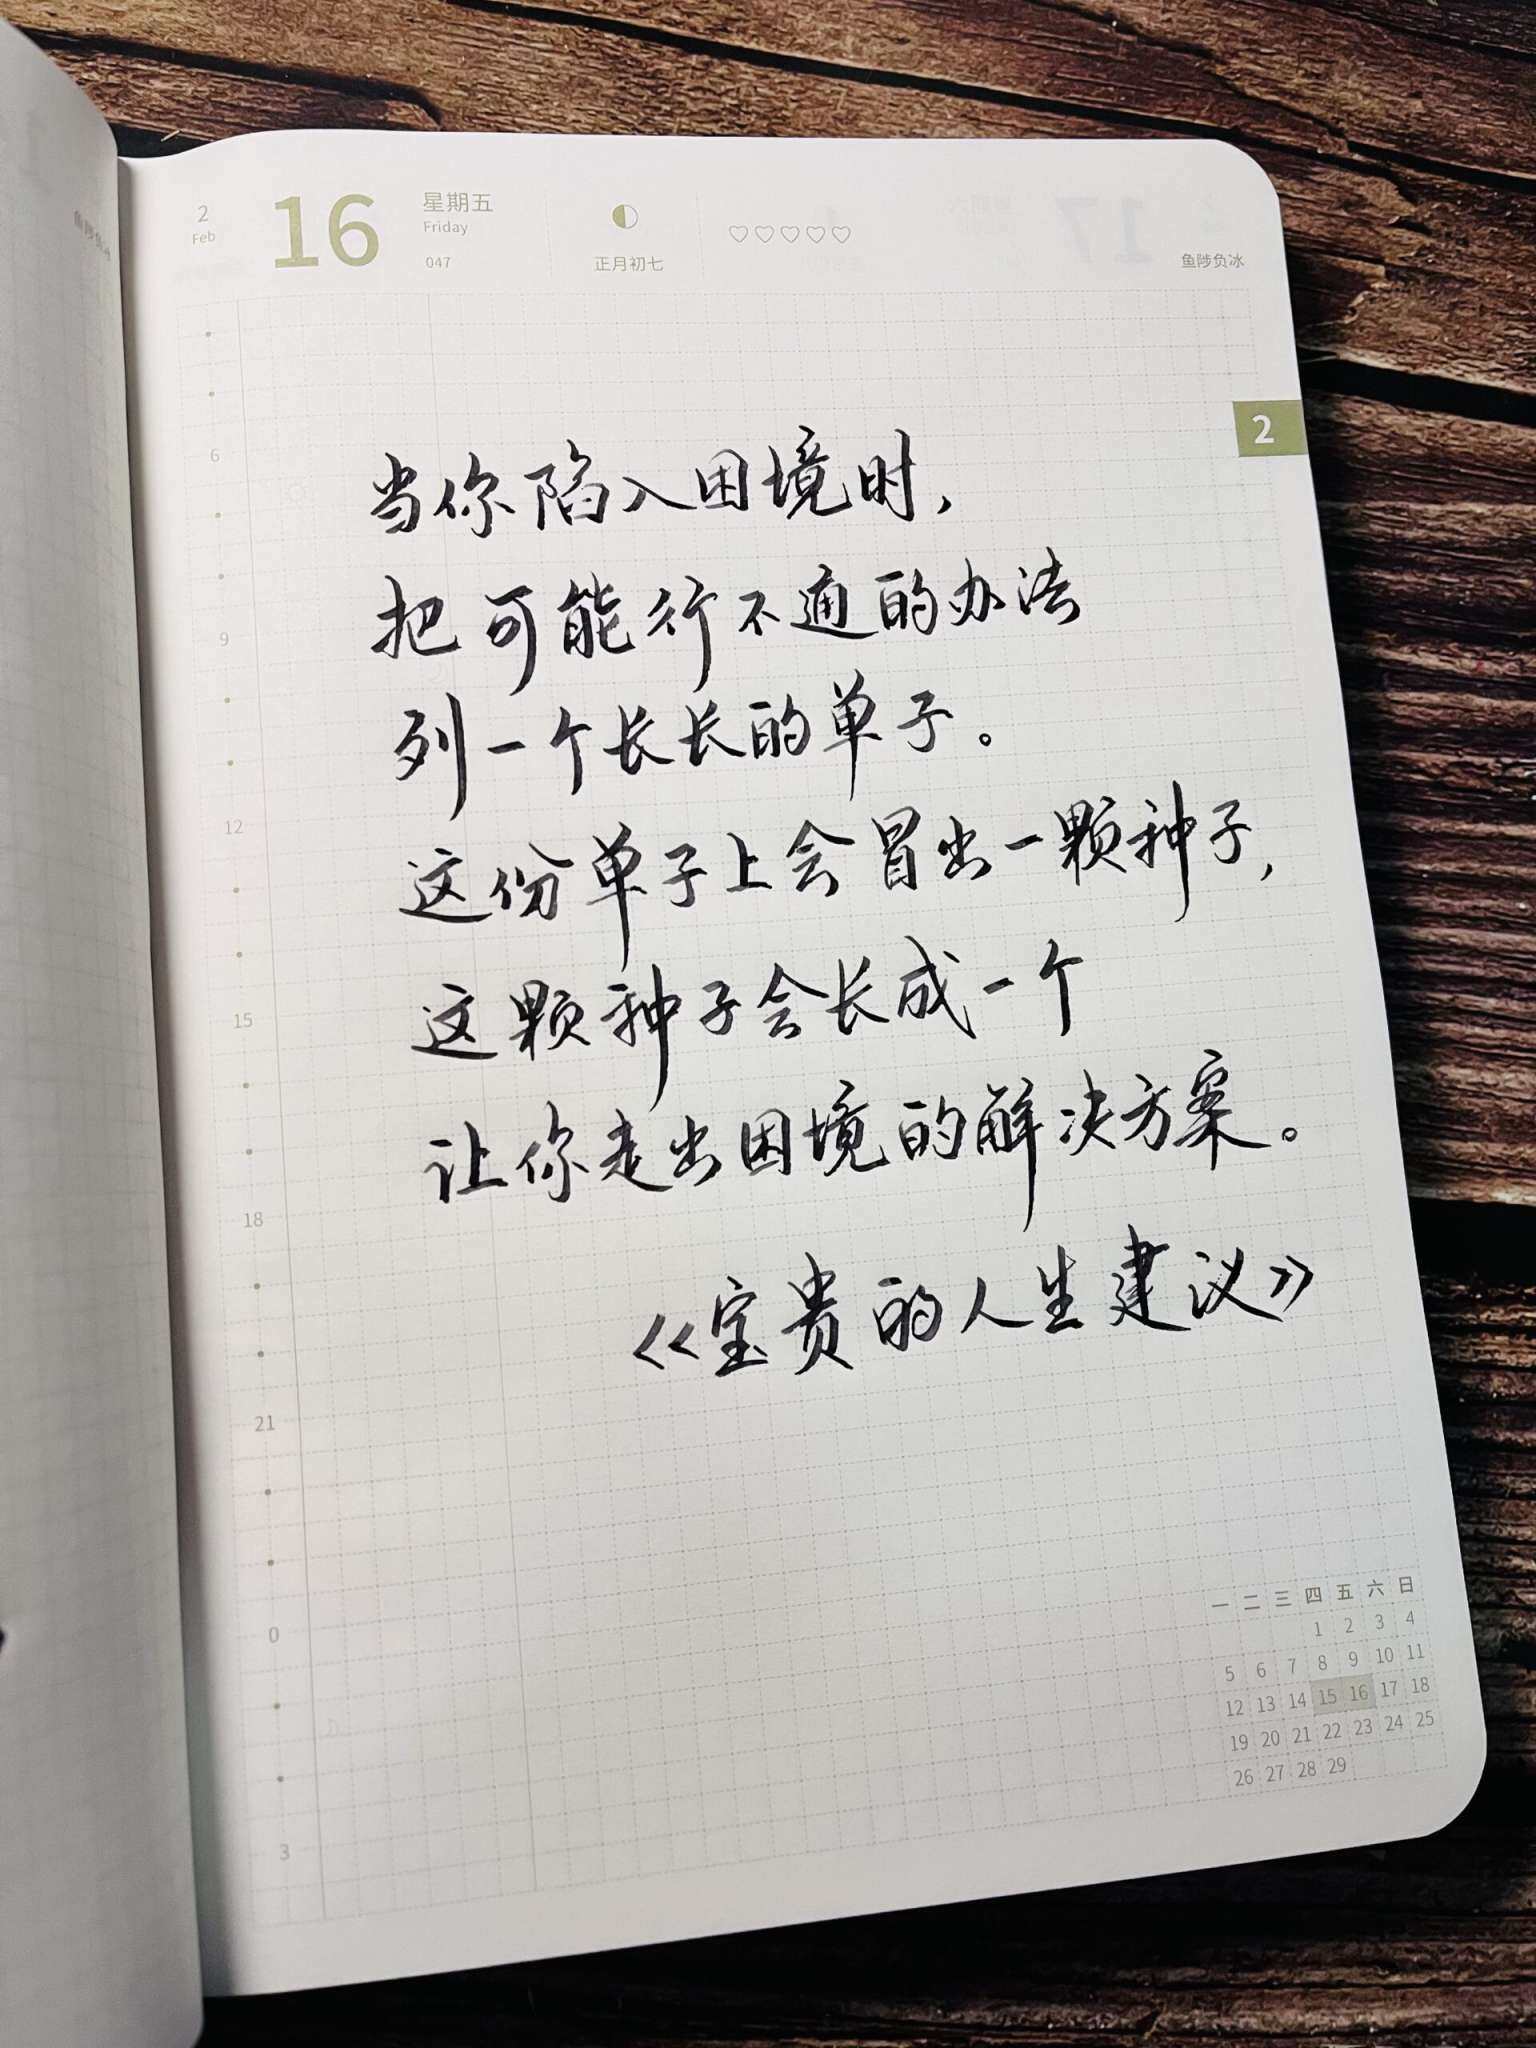 2
Feb
16
星期五
Friday
047
正月初七
鱼陟负冰
2
当你陷入困境时，
把可能行不通的办法
列一个长长的单子。
这份单子上会冒出一颗种子，
这颗种子会长成一个
让你走出困境的解决方案。
《宝贵的人生建议》
6
9
12
15
18
21
0
3
一 二 三 四 五 六 日
1 2 3 4
5 6 7 8 9 10 11
12 13 14 15 16 17 18
19 20 21 22 23 24 25
26 27 28 29